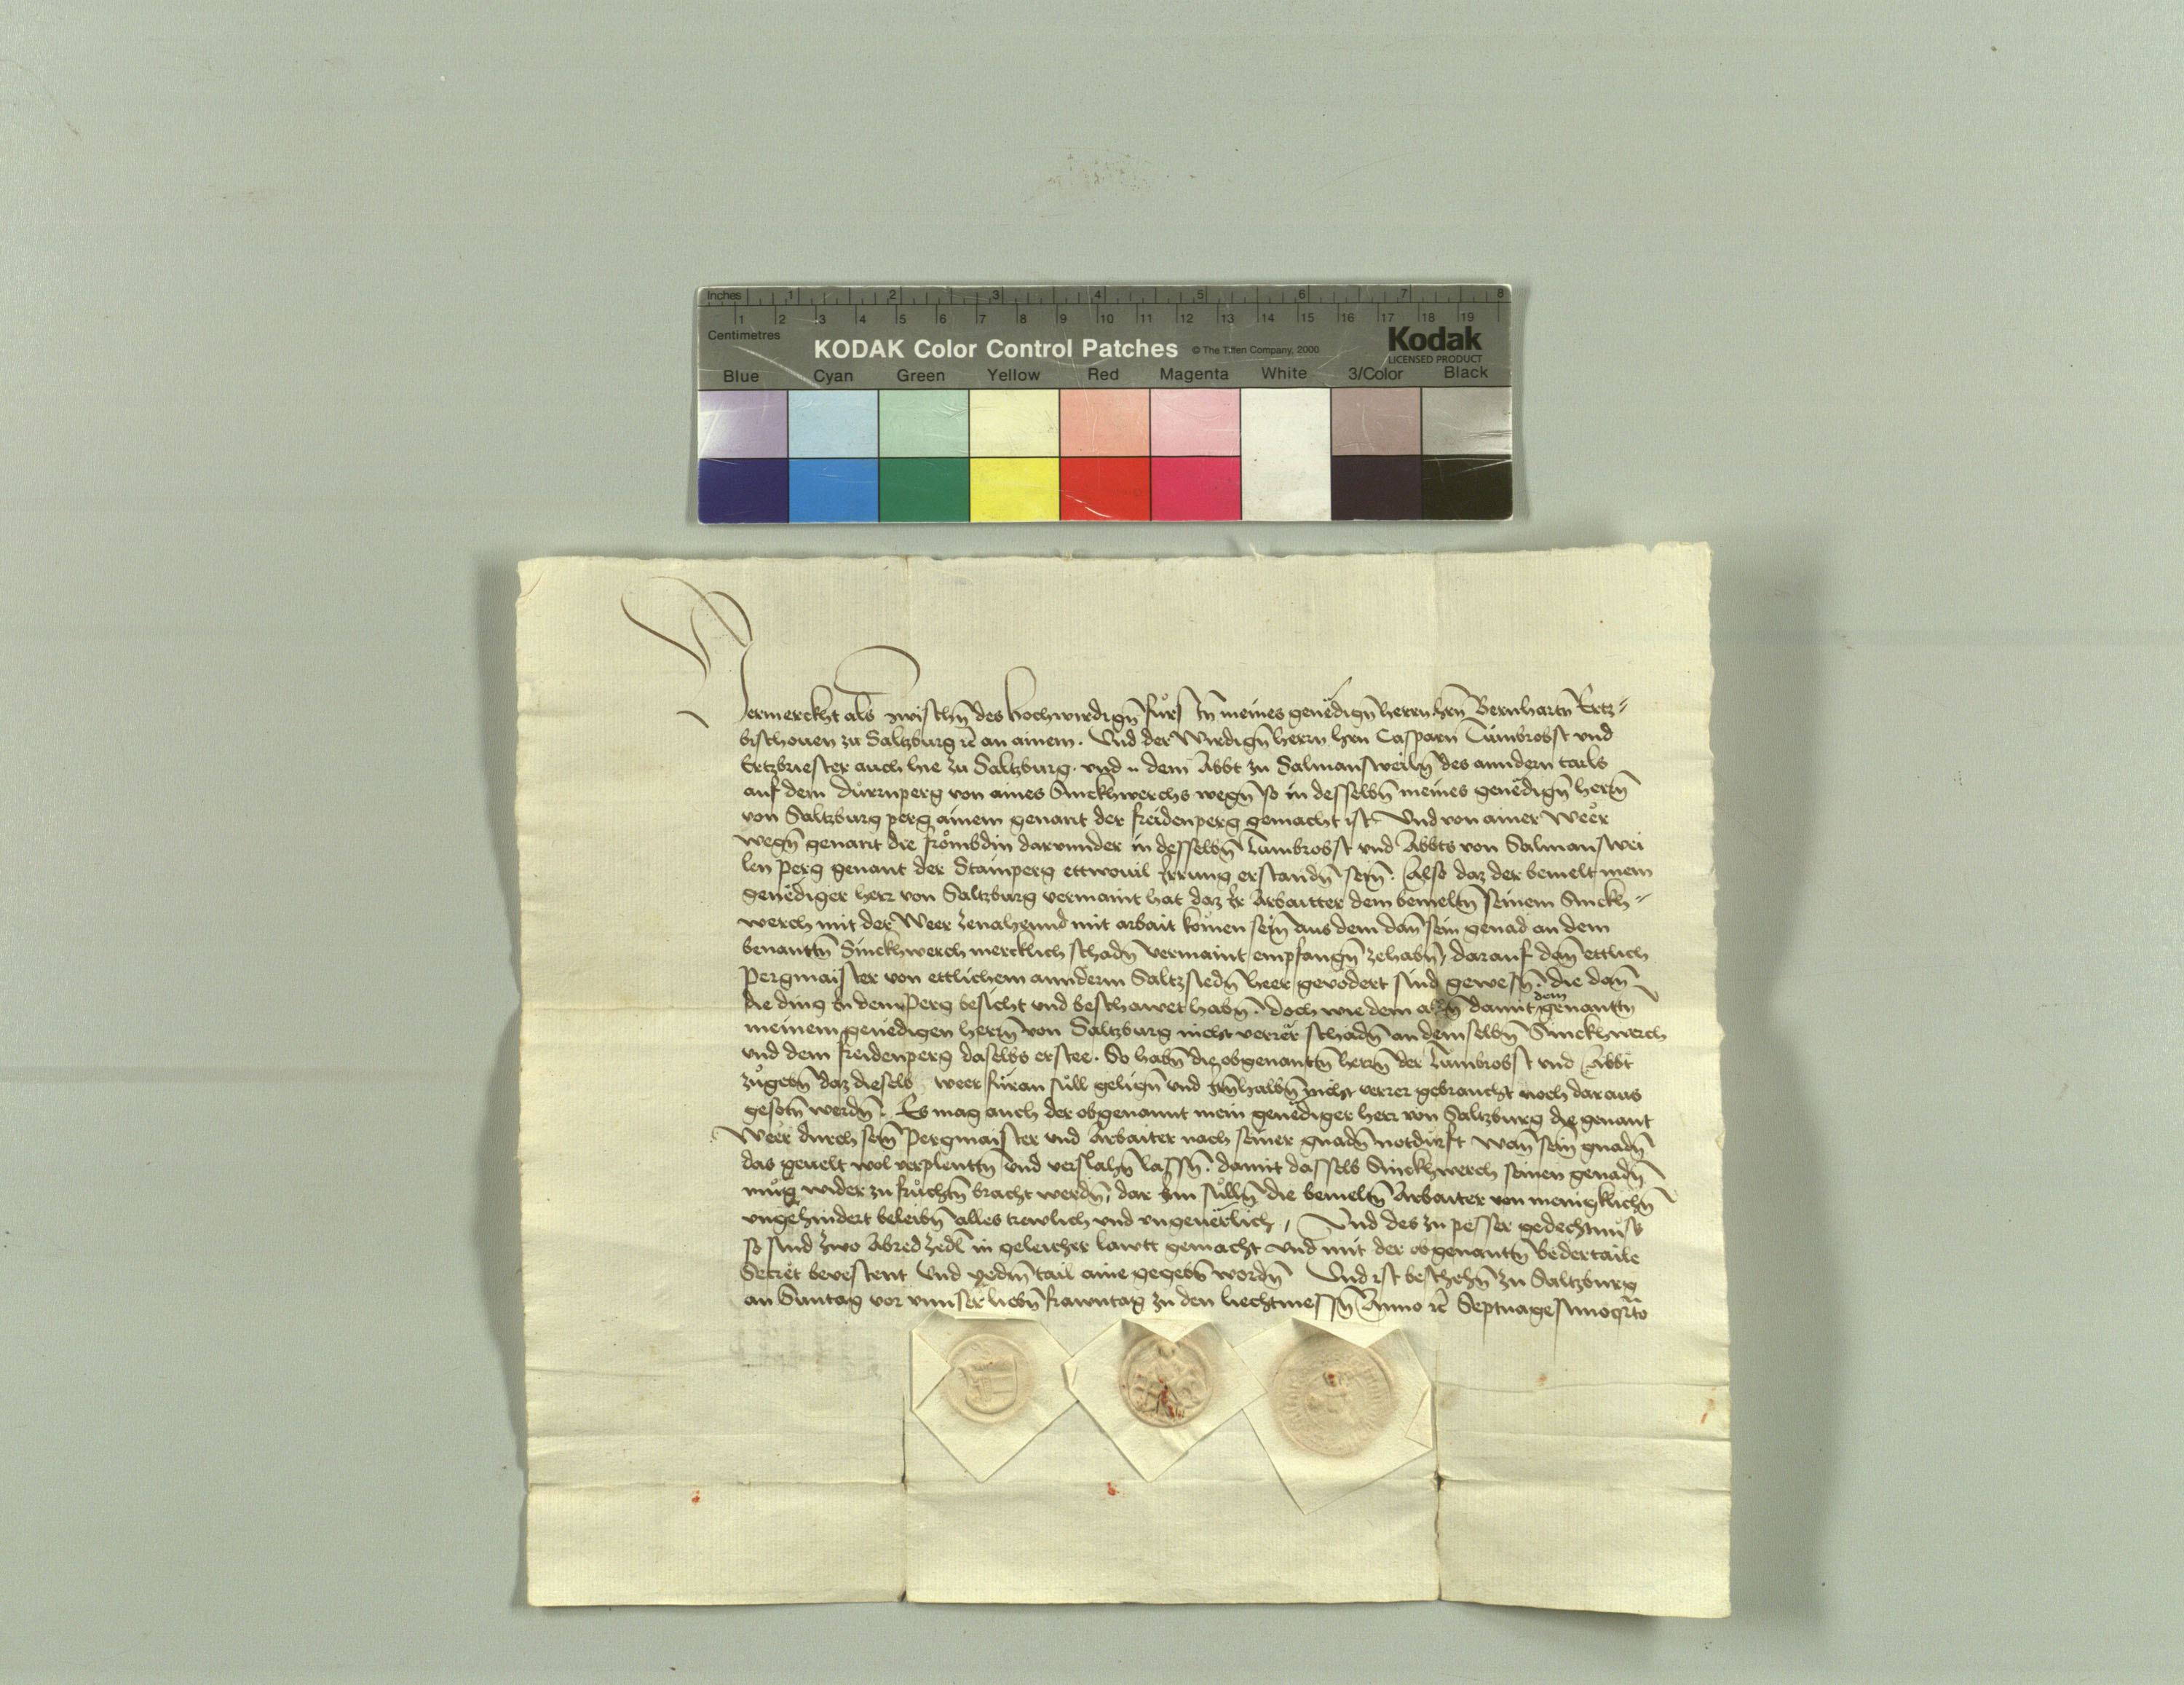 Inches 1 2 3 4 5 6 7 8
1 2 3 4 5 6 7 8 9 10 11 12 13 14 15 16 17 18 19
Centimetres
KODAK Color Control Patches © The Tiffen Company, 2000 Kodak
LICENSED PRODUCT
Blue Cyan Green Yellow Red Magenta White 3/Color Black
Vermerckht als zwischn̄ des hochwirdign̄ fürstn̄ meines genedign̄ herrn hrn̄ Bernhartn̄ Ertz-
bischouen zu Saltzburg ꝛc̄ an ainem. Vnd der Wirdign̄ herrn hrn Casparn Tümbrobst vnd
Ertzbriester auch hie zu Saltzburg. vnd .. dem Abbt zu Salmansweiln̄ des anndern tails
auf dem Dürrnperg von aines Sinckhwerchs wegn̄ so in desselbn̄ meines genedign̄ herrn̄
von Saltzburg perg ainem genant der freidenperg gemacht ist. Vnd von ainer Weer
wegn̄ genant die frömbdin darunnder in desselbn̄ Tumbrobst vnd Abbts von Salmanswei
len perg genant der Stainperg ettwouil Irrung erstandn̄ sein̄. Also daz der bemelt mein
genediger herr von Saltzburg vermaint hat daz Ir Arbaitter dem bemeltn̄ seinem Sinckh-
werch mit der Weer zenahennd mit arbait komen sein̄ aus dem dan̄ sein genad an dem
benanttn̄ Sinckhwerch mercklich schadn̄ vermaint empfangn̄ zehabn̄, darauf dan̄ ettlich
Pergmaister von ettlichem anndern Saltzsiedn̄ heer geuodert sind gewesn̄. die dan̄
die ding in dem Perg besicht vnd beschawet habn̄. doch wie dem alln̄ damit dem genanttn̄
meinem genedigen herrn̄ von Saltzburg nicht verrer schadn̄ an demselbn̄ Sinckhwerch
vnd dem freidenperg daselbs erstee. So habn̄ die obgenantn̄ herrn̄ der Tumbrobst vnd Abbt
zugebn̄ daz dieselb weer füran süll gelign̄ vnd Irn̄halbn̄ nicht verrer gebraucht noch daraus
gesotn̄ werdn̄. Es mag auch der obgenannt mein genediger herr von Saltzburg die genant
Weer durch sein̄ Pergmaister vnd Arbaiter nach seiner gnadn̄ notdurft wan̄ sein̄ gnadn̄
das geuelt wol verplenttn̄ vnd verslahn̄ lassn̄. damit dassels Sinckhwerch seinen genadn̄
müg wider zu früchtn̄ bracht werdn̄, dar Inn sülln̄ die bemeltn̄ Arbaiter von menigklichn̄
vngehindert beleibn̄ alles trewlich vnd vngeuerlich, Vnd des zu pesser gedechtnüss
so sind zwo Abred zedl in geleicher lawtt gemacht vnd mit der obgenanttn̄ beder taile
Secret beuestent vnd yedm̄ tail aine gegebn̄ wordn̄ Vnd ist beschehn̄ zu Saltzburg
an Suntag vor vnnser liebn̄ frawntag zu den liechtmessn̄ Anno ꝛc̄ Septuagesimoqr̄to